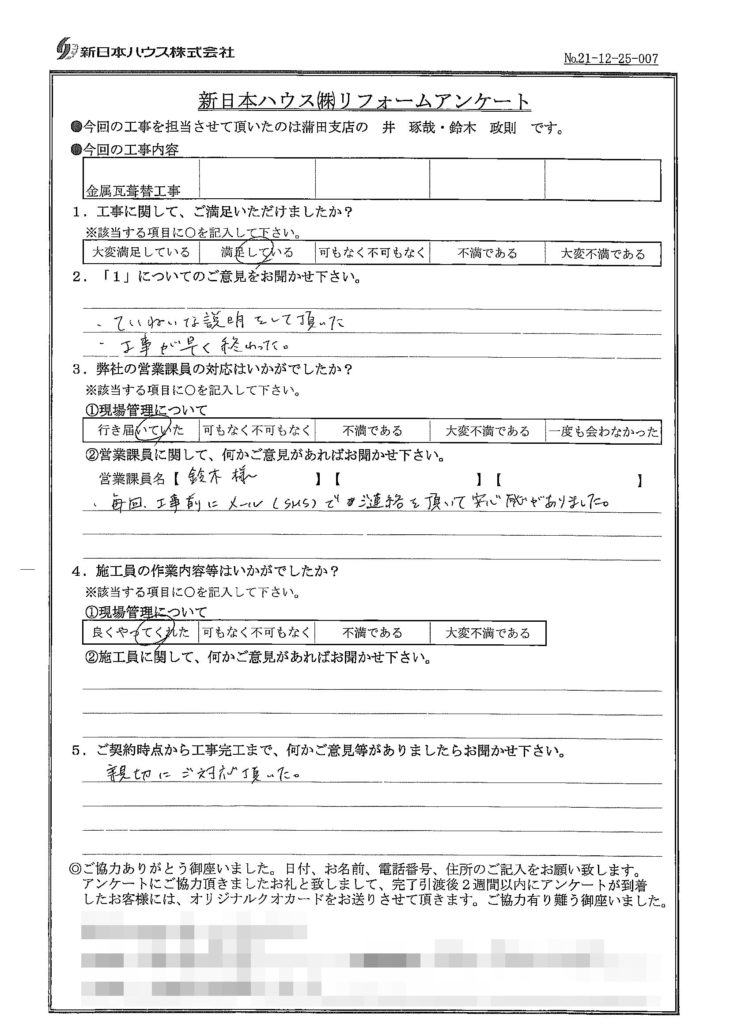 新日本ハウス株式会社
No.21-12-25-007
新日本ハウス㈱リフォームアンケート
●今回の工事を担当させて頂いたのは蒲田支店の 井 琢哉・鈴木 政則 です。
●今回の工事内容
金属瓦葺替工事
1．工事に関して、ご満足いただけましたか？
※該当する項目に○を記入して下さい。
大変満足している 満足している 可もなく不可もなく 不満である 大変不満である
2．「1」についてのご意見をお聞かせ下さい。
・ていねいな説明をして頂いた
・工事が早く終わった。
3．弊社の営業課員の対応はいかがでしたか？
※該当する項目に○を記入して下さい。
①現場管理について
行き届いていた 可もなく不可もなく 不満である 大変不満である 一度も会わなかった
②営業課員に関して、何かご意見があればお聞かせ下さい。
営業課員名【 鈴木様 】【 】【 】
・毎回、工事前にメール(SMS)で連絡を頂いて安心感がありました。
4．施工員の作業内容等はいかがでしたか？
※該当する項目に○を記入して下さい。
①現場管理について
良くやってくれた 可もなく不可もなく 不満である 大変不満である
②施工員に関して、何かご意見があればお聞かせ下さい。
5．ご契約時点から工事完工まで、何かご意見等がありましたらお聞かせ下さい。
親切にご対応頂いた。
◎ご協力ありがとう御座いました。日付、お名前、電話番号、住所のご記入をお願い致します。
アンケートにご協力頂きましたお礼と致しまして、完了引渡後２週間以内にアンケートが到着
したお客様には、オリジナルクオカードをお送りさせて頂きます。ご協力有り難う御座いました。